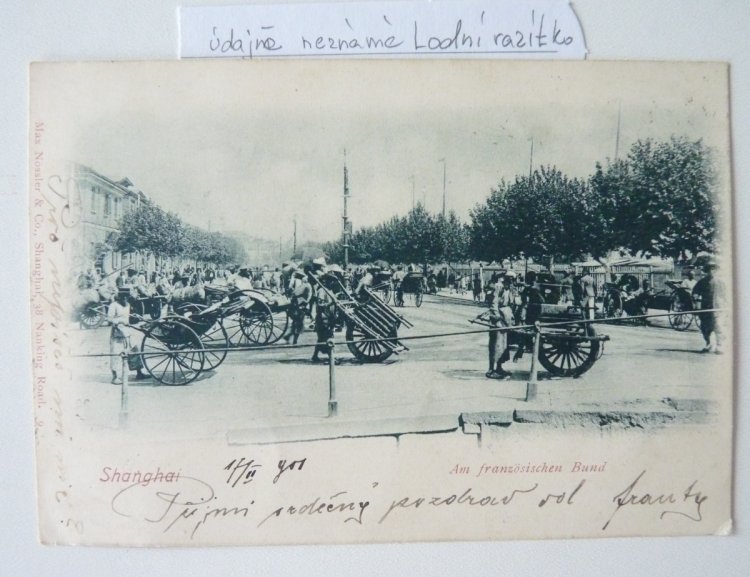 údajně neznámé Lodní razítko
Max Nossler & Co., Shanghai, 38 Nanking Road.
Proč nepíšeš mi
Shanghai 17/II 901
Am französischen Bund
Přijmi srdečný pozdrav od Franty